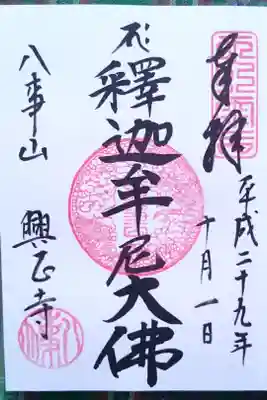 奉拝
平成二十九年
十月一日
釋迦牟尼大佛
八事山
興正寺